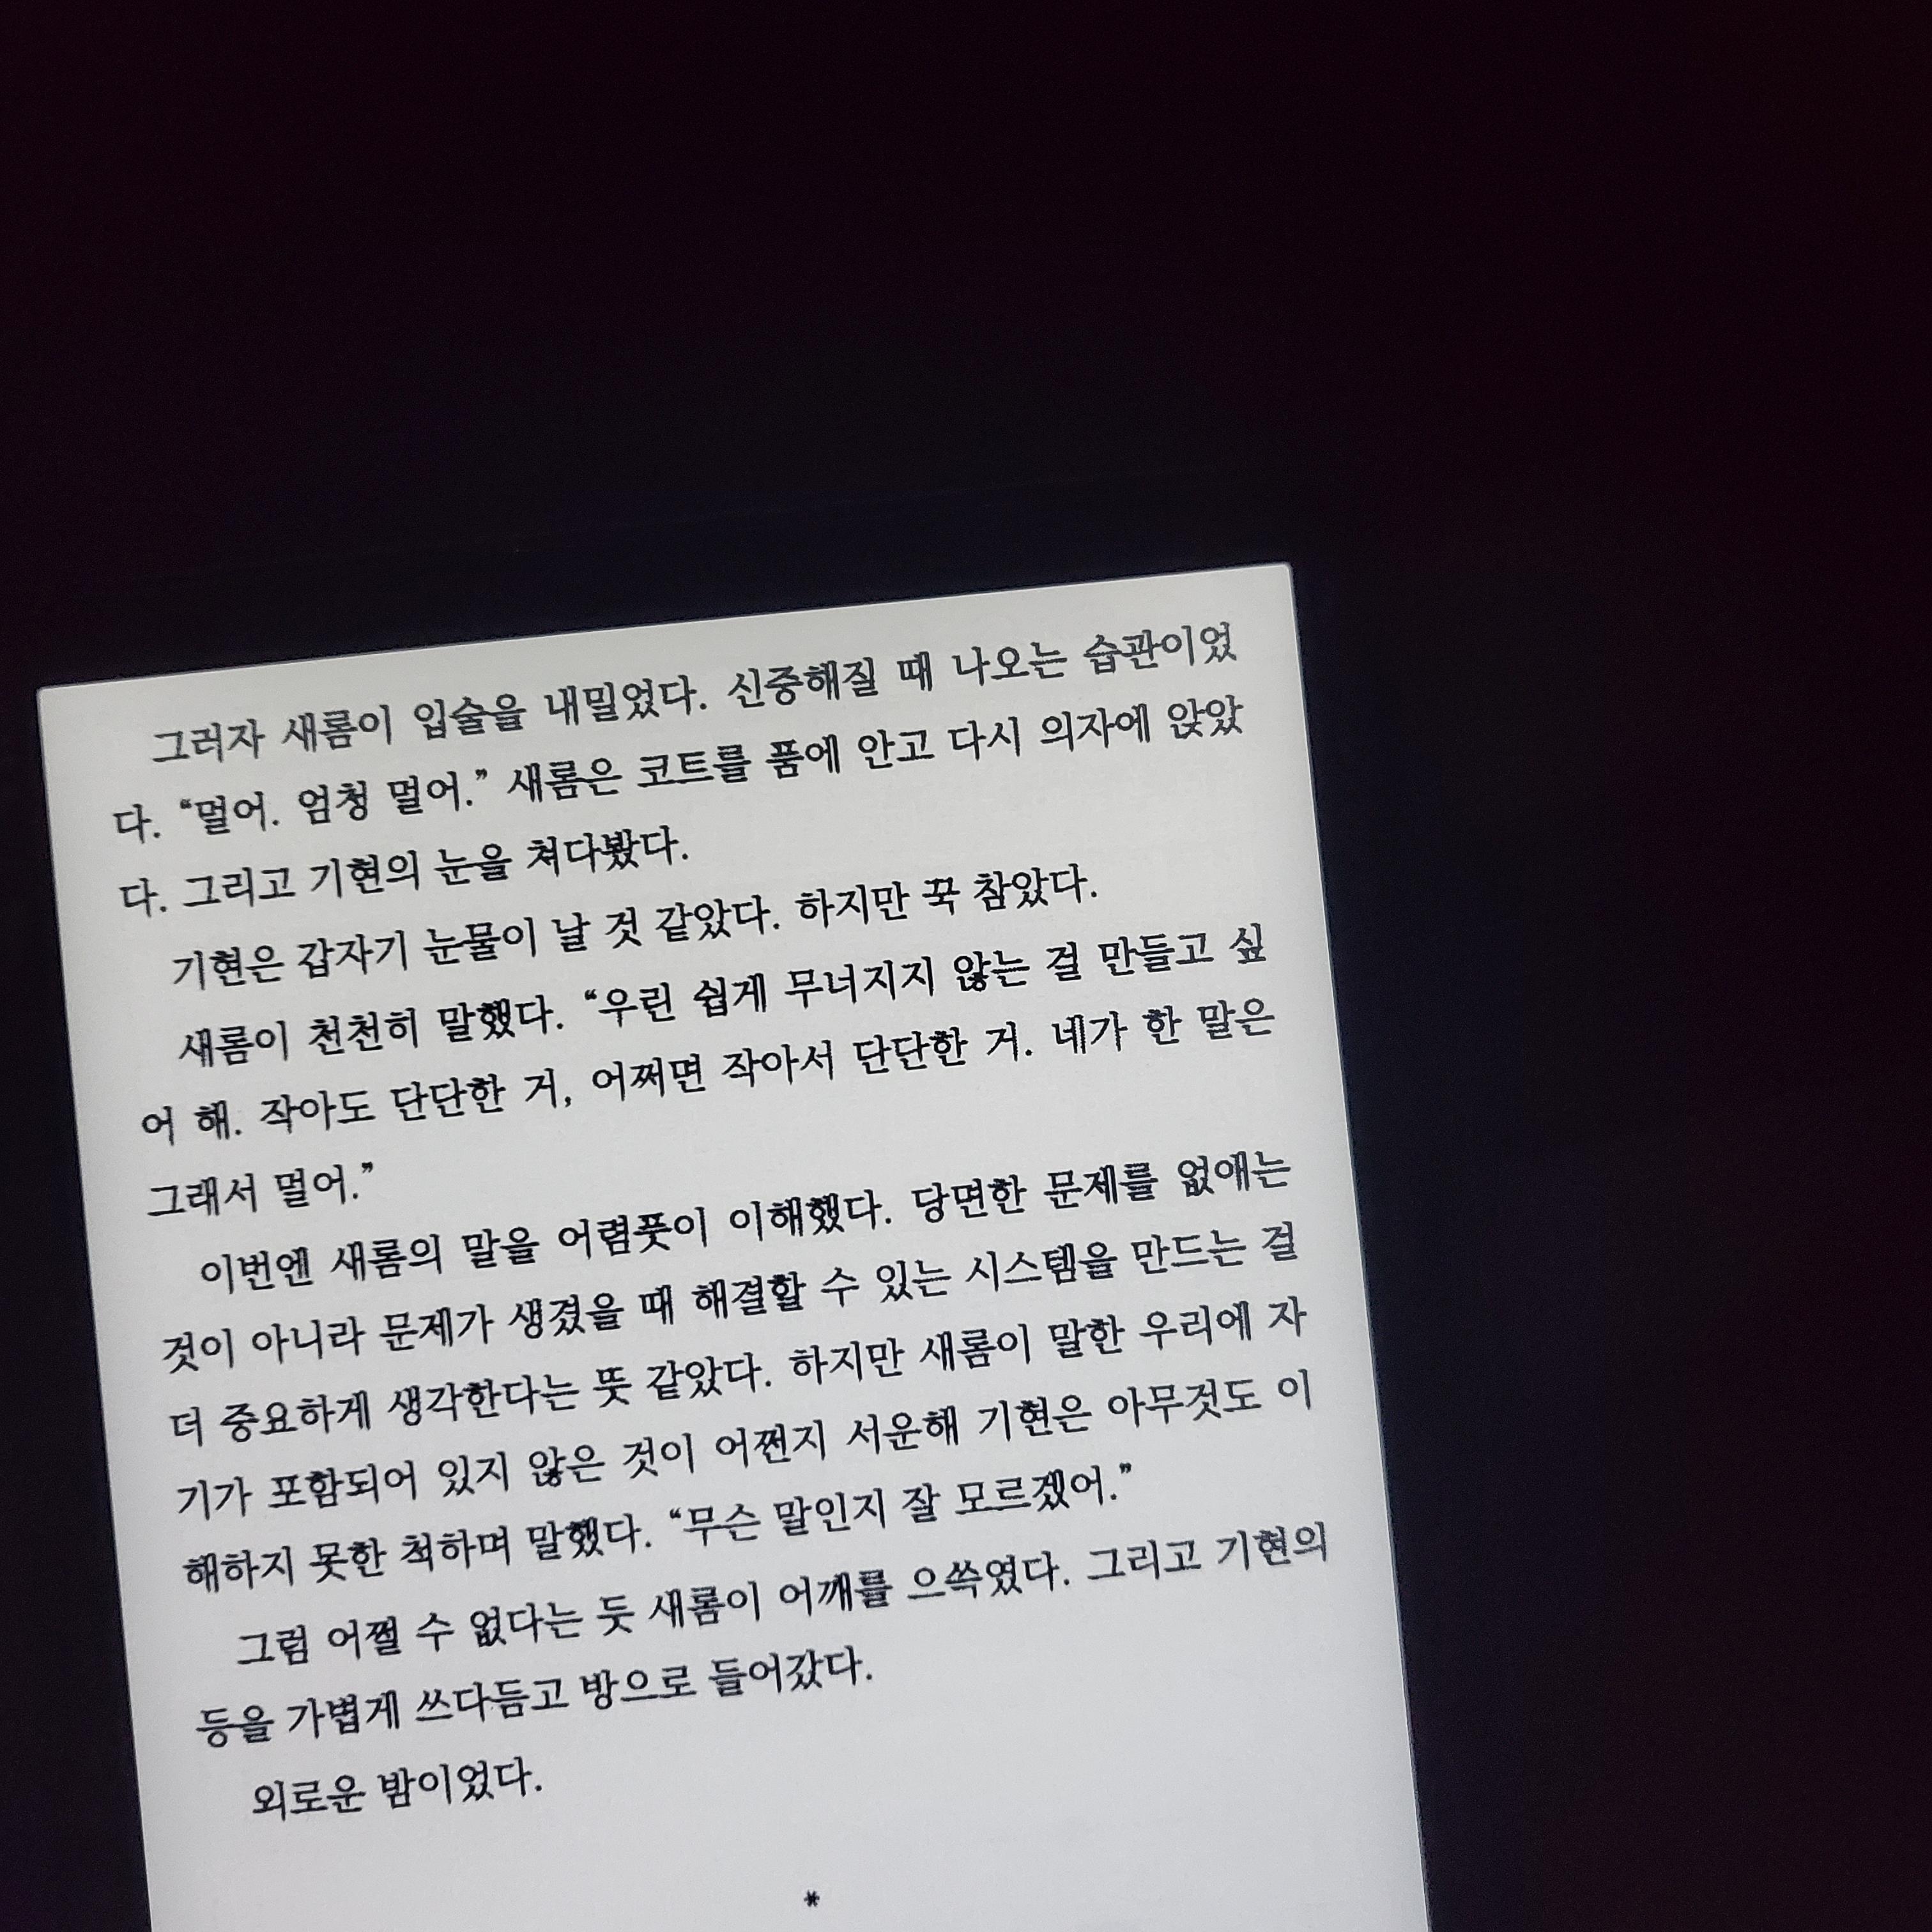 그러자 새롬이 입술을 내밀었다. 신중해질 때 나오는 습관이었
다. “멀어. 엄청 멀어.” 새롬은 코트를 품에 안고 다시 의자에 앉았
다. 그리고 기현의 눈을 쳐다봤다.
기현은 갑자기 눈물이 날 것 같았다. 하지만 꾹 참았다.
새롬이 천천히 말했다. “우린 쉽게 무너지지 않는 걸 만들고 싶
어 해. 작아도 단단한 거, 어쩌면 작아서 단단한 거. 네가 한 말은
그래서 멀어.”
이번엔 새롬의 말을 어렴풋이 이해했다. 당면한 문제를 없애는
것이 아니라 문제가 생겼을 때 해결할 수 있는 시스템을 만드는 걸
더 중요하게 생각한다는 뜻 같았다. 하지만 새롬이 말한 우리에 자
기가 포함되어 있지 않은 것이 어쩐지 서운해 기현은 아무것도 이
해하지 못한 척하며 말했다. “무슨 말인지 잘 모르겠어.”
그럼 어쩔 수 없다는 듯 새롬이 어깨를 으쓱였다. 그리고 기현의
등을 가볍게 쓰다듬고 방으로 들어갔다.
외로운 밤이었다.
*